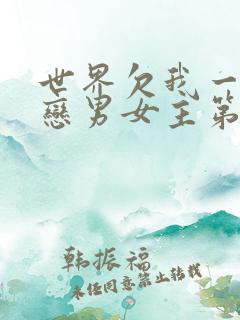 世界欠我一
戀男女主第
韩振福
未经同意禁止转载